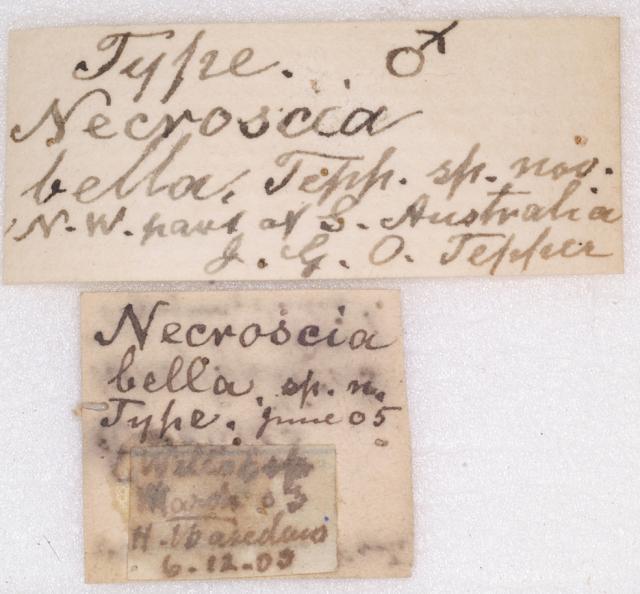 Type. ♂
Necroscia
bella, Tepp. sp. nov.
N.W. part of S. Australia
J. G. O. Tepper
Necroscia
bella sp. n.
Type. june 05
03
H. Basedow
6-12-03